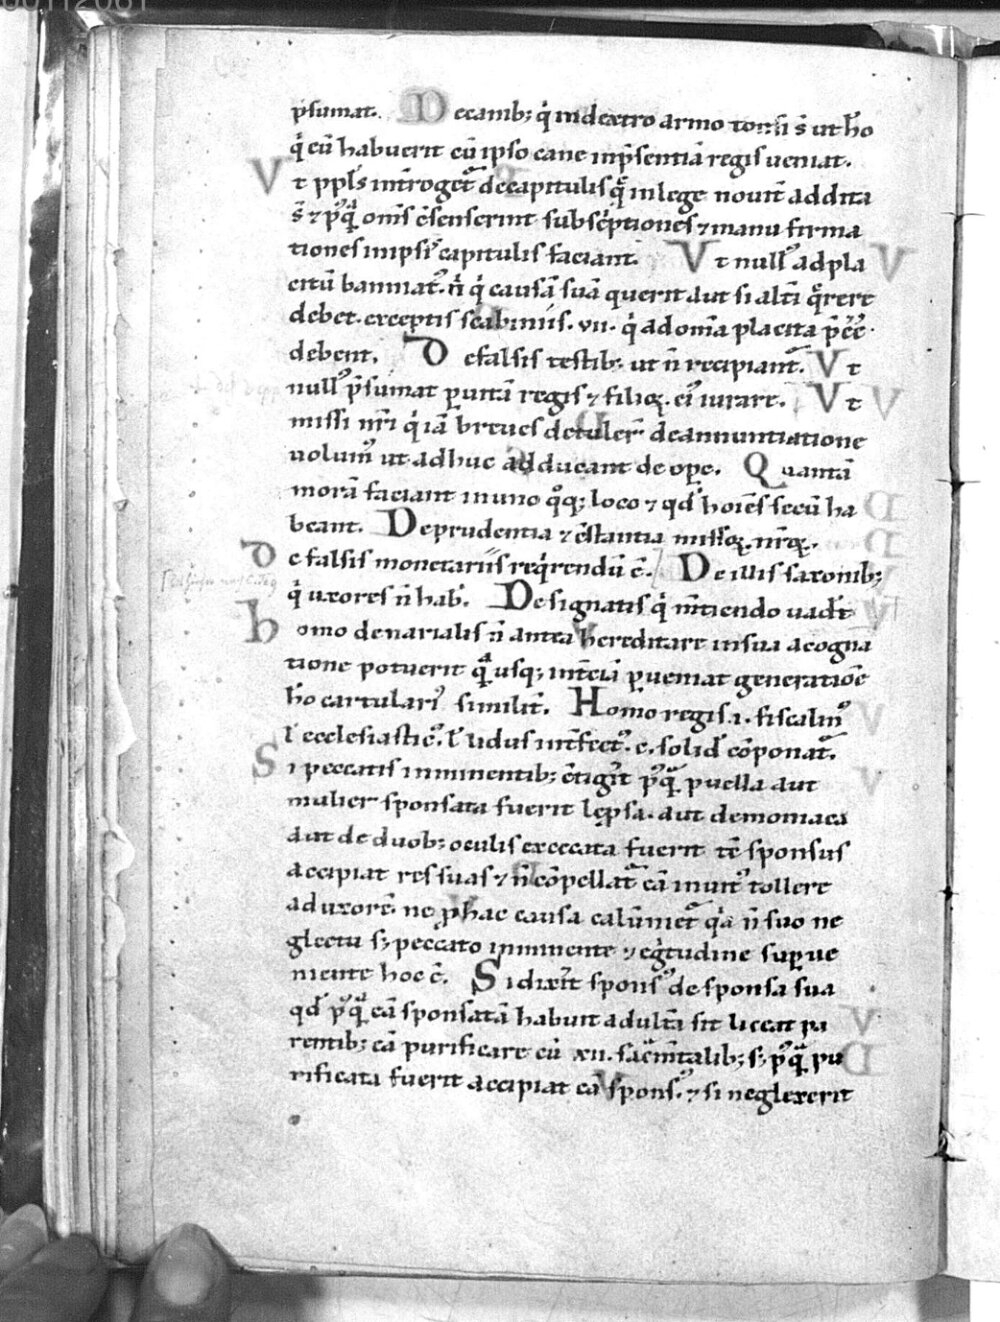 p̄sumat. Decanib; q̇ in dextro armo tonsi s̄ ut ho
q̇ eū habuerit cū ipso cane in p̄sentiā regis ueniat.
Vt ppl̄s int̄roget᷑ de capitulis q̄ in lege nouit̄ addita
s̄ ⁊ pꝰq̄ om̄s c̄senserint subsc̄ptiones ⁊ manu firma
tiones in ipsiꝰ capitulis faciant. Vt nullꝰ ad pla
citū banniat᷑. n̄ q̇ causā suā querit aut si alt̄i q̄rere
debet. exceptis scabiniis. vii. q̇ ad om̄a placita p̄eē
debent. De falsis testib; ut n̄ recipiant᷑. Vt
nullꝰ p̄sumat p uitā regis ⁊ filioꝝ. eiꝰ iurare. Vt
missi nr̄i q̇ iā breues detuler̄ de annuntiatione
uolumꝰ ut adhuc adducant de ope. Quantā
morā faciant in uno q̊q; loco ⁊ qd̄ hoīes secū ha
beant. De prudentia ⁊ c̄stantia missoꝝ. nr̄oꝝ.
De falsis monetariis req̇rendū ē. De illis saxonib;
q̇ uxores n̄ hab̄. De signatis q̇ m̄tiendo uad̄t
homo denarialis n̄ antea hereditare in sua acogna
tione potuerit q̄ usq; int̄ciā pueniat generationē
ho cartulariꝰ similit̄. Homo regis .i. fiscalinꝰ
l̄ ecclesiasticꝰ. l̄ lidus int̄fectꝰ. c. solid̄ cōponat᷑.
Si peccatis inminentib; c̄tiḡit pꝰq̄ puella aut
mulier sponsata fuerit lepsa. aut demoniaca
aut de duob; oculis excecata fuerit tē sponsus
accipiat res suas ⁊ n̄ cōpellat᷑ eā inuitꝰ tollere
ad uxorē ne p hac causa calūniet᷑ q̇a n̄ suo ne
glectu s; peccato inminente ⁊ eġtudine supue
niente hoc ē. Si dix̄it sponsꝰ de sponsa sua
qd̄ pꝰq̄ eā sponsatā habuit adult̄a sit liceat pa
rentib; eā purificare cū xii. sac̄m̄talib; s; pꝰq̄ pu
rificata fuerit accipiat eā sponsꝰ. ⁊ si neglexerit